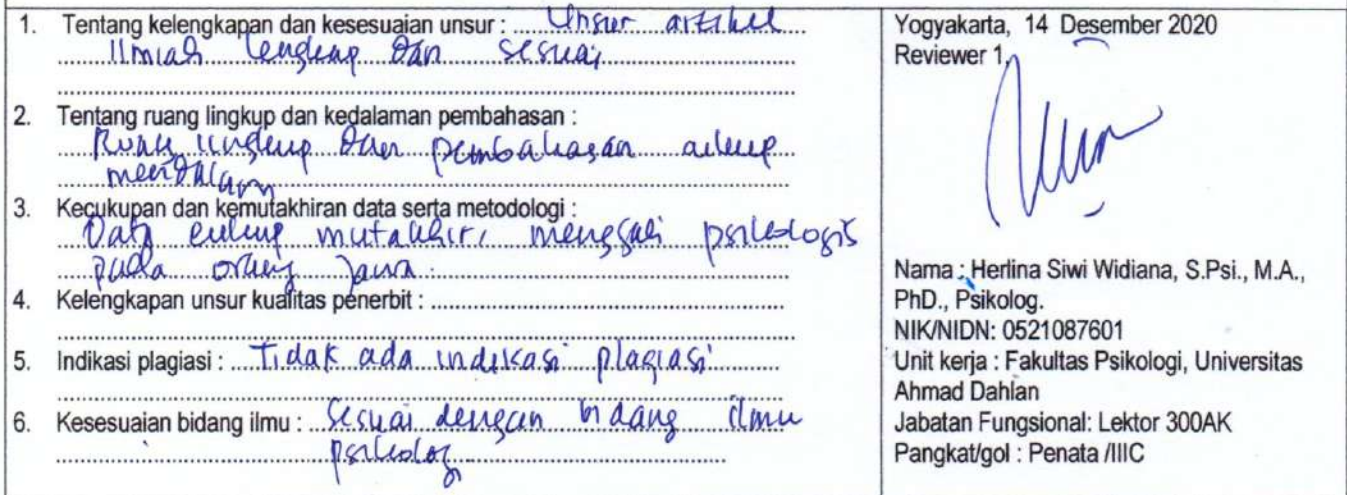 1. Tentang kelengkapan dan kesesuaian unsur : Unsur artikel
Ilmiah lengkap dan sesuai
2. Tentang ruang lingkup dan kedalaman pembahasan :
Ruang lingkup dan pembahasan cukup
mendalam
3. Kecukupan dan kemutakhiran data serta metodologi :
Data cukup mutakhir, menggali psikologis
pada orang Jawa.
4. Kelengkapan unsur kualitas penerbit :
5. Indikasi plagiasi : Tidak ada indikasi plagiasi
6. Kesesuaian bidang ilmu : Sesuai dengan bidang ilmu
psikologi
Yogyakarta, 14 Desember 2020
Reviewer 1,
Nama : Herlina Siwi Widiana, S.Psi., M.A.,
PhD., Psikolog.
NIK/NIDN: 0521087601
Unit kerja : Fakultas Psikologi, Universitas
Ahmad Dahlan
Jabatan Fungsional: Lektor 300AK
Pangkat/gol : Penata /IIIC